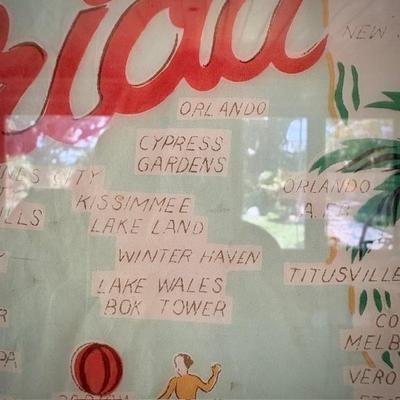 rida
NEW
ORLANDO
CYPRESS
GARDENS
NES CITY
KISSIMMEE
ORLANDO
A.F.B.
LLS
LAKE LAND
WINTER HAVEN
TITUSVILLE
LAKE WALES
BOK TOWER
CO
MELB
PA
VERO